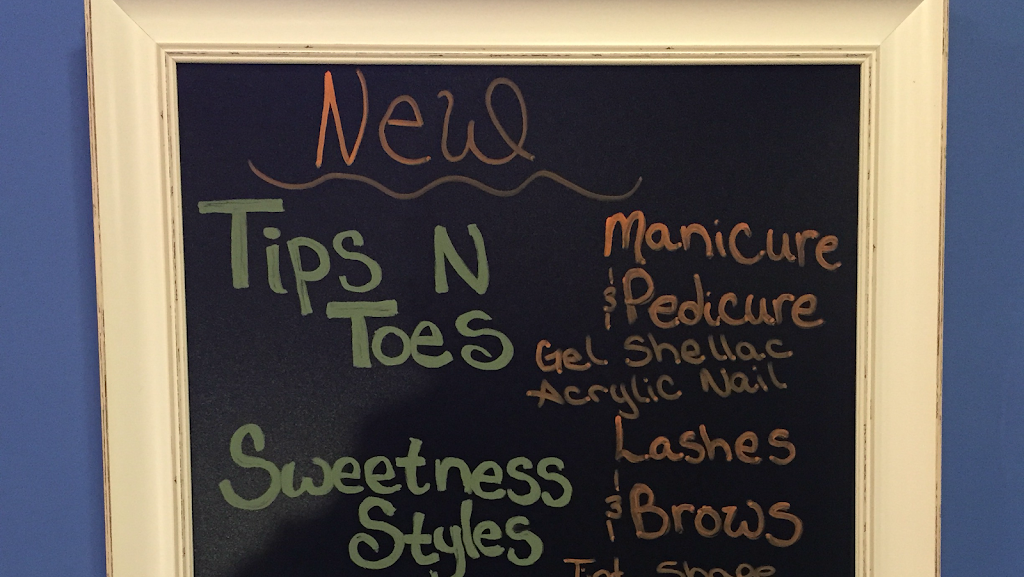 New
Tips N
Toes
Manicure
& Pedicure
Gel Shellac
Acrylic Nail
Sweetness
Styles
Lashes
& Brows
Tint Shape